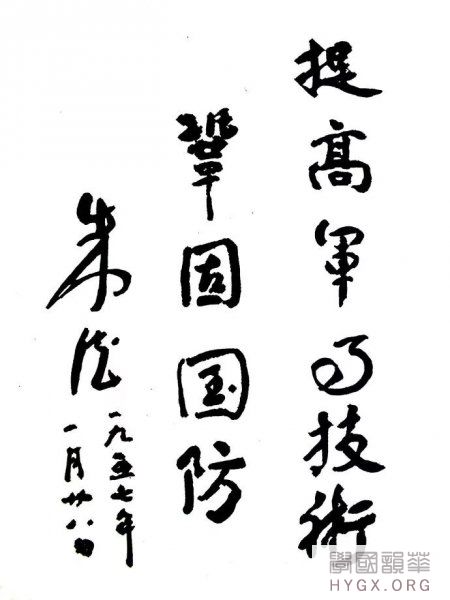 提高軍事技術
鞏固国防
朱德
一九五七年
一月廿八日
學國韻華
HYGX.ORG